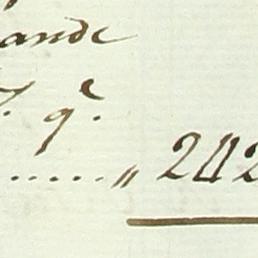 ande
7. q.e
..... „ 242